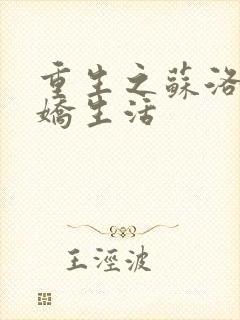 重生之蘇洛
嬌生活
王涇波